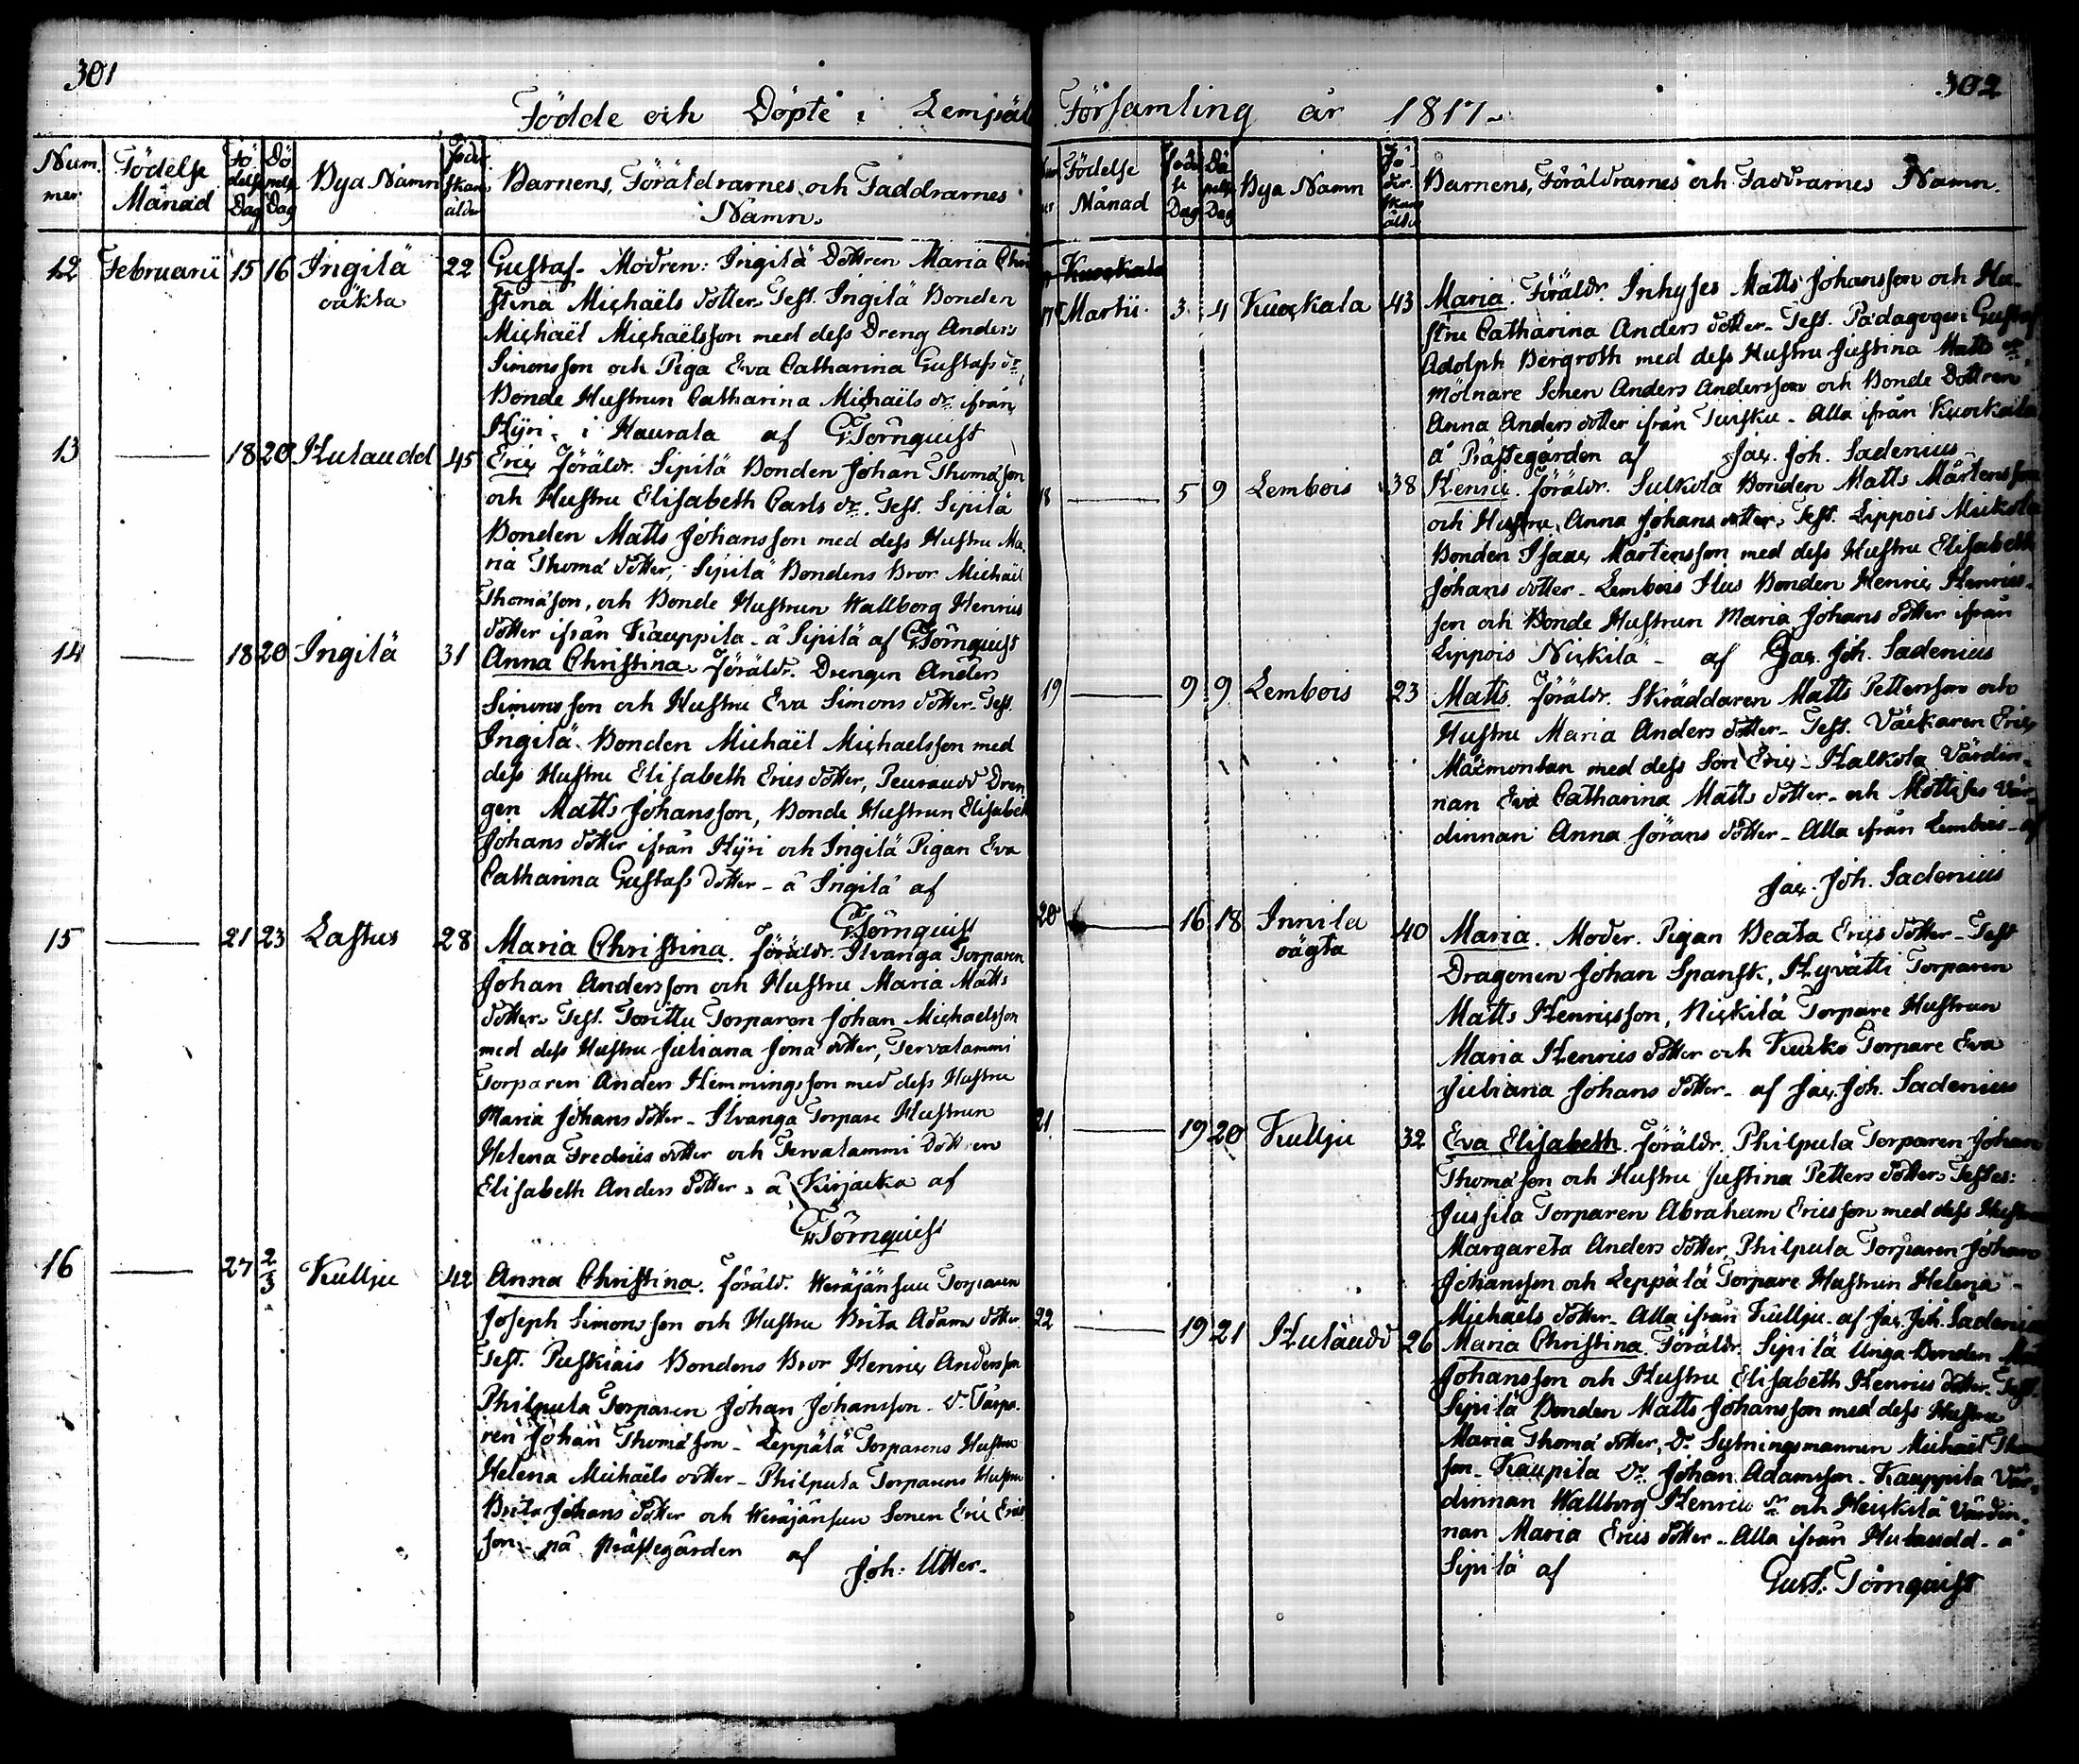 301
Födde och Döpte i Lempäl
Num
mer
Födelse
Månad
Fö
delse
Dag
Dö
pelse
Dag
Bya Namn
Föder
skans
ålder
Barnens, Föräldrarnes och Faddrarnes
Namn.
12 Februarii 15 16 Ingilä 22 Gustaf. Modren: Ingilä Dottren Maria Chri
oäkta
stina Michaëls dotter. Test. Ingilä Bonden
Michaël Michaëlsson med dess Dreng Anders
Simonsson och Piga Eva Catharina Gustafs dr
Bonde Hustrun Catharina Michaëls dr ifrån
Hyri. i Haurala af G. Törnquist
13 18 20 Hulaudd 45 Eric Föräldr. Sipilä Bonden Johan Thomæson
och Hustru Elisabeth Carls dr. Test. Sipilä
Bonden Matts Johansson med dess Hustru Ma-
ria Thomæ dotter, Sipilä Bondens Bror Michaël
Thomæson, och Bonde Hustrun Wallborg Henrics
dotter ifrån Kauppila - å Sipilä af G. Törnquist
14 18 20 Ingilä 31 Anna Christina. Föräldr. Drengen Anders
Simonsson och Hustru Eva Simons dotter. Test.
Ingilä Bonden Michaël Michaelsson med
dess Hustru Elisabeth Erics dotter, Peuraudd Dren
gen Matts Johansson, Bonde Hustrun Elisabeth
Johans dotter ifrån Hyri och Ingilä Pigan Eva
Catharina Gustafs dotter - å Ingilä af
G. Törnquist
15 21 23 Lastus 28 Maria Christina. Föräldr. Ilvanga Torparen
Johan Andersson och Hustru Maria Matts
dotter. Test. Torittu Torparen Johan Michaelsson
med dess Hustru Juliana Jonæ dotter, Tervalammi
Torparen Anders Hemmingsson med dess Hustru
Maria Johans dotter - Ilvanga Torpare Hustrun
Helena Fredrics dotter och Tervalammi Dottren
Elisabeth Anders dotter. å Kirjacka af
G. Törnquist
16 27 2/3 Kullju 42 Anna Christina. Föräld. Heräjänsuu Torparen
Joseph Simonsson och Hustru Brita Adams dotter.
Test. Puskiais Bondens Bror Henric Andersson
Philpula Torparen Johan Johansson - Do Torpa-
ren Johan Thomæson - Leppälä Torparens Hustru
Helena Michaëls dotter - Philpula Torparens Hustru
Brita Johans dotter och Heräjänsuu Sonen Eric Erics
son - på Prästegården af
Joh. Utter.
302
Församling år 1817.
Födelse
Månad
Föde
lse
Dag
Dö
pelse
Dag
Bya Namn
Fö-
der
skans
ålder
Barnens, Föräldrarnes och Faddrarnes Namn.
17 Martii 3 4 Kuockala 43 Maria. Föräldr. Inhyses Matts Johansson och Hu-
stru Catharina Anders dotter - Test. Pædagogen Gustaf
Adolph Bergroth med dess Hustru Justina Matts dr
Mölnare Sonen Anders Andersson och Bonde Dottren
Anna Anders dotter ifrån Tursku - Alla ifrån Kuockala
å Prästegården af Jac. Joh. Sadenius
18 5 9 Lembois 38 Henric. Föräldr. Sulkola Bonden Matts Mårtensson
och Hustru Anna Johans dotter. Test. Lippois Mickola
Bonden Isaac Mårtensson med dess Hustru Elisabeth
Johans dotter - Lembois Hus Bonden Henric Henrics-
son och Bonde Hustrun Maria Johans dotter ifrån
Lippois Nickilä - af Jac. Joh. Sadenius
19 9 9 Lembois 23 Matts. Föräldr. Skräddaren Matts Pettersson och
Hustru Maria Anders dotter - Test. Väckaren Eric
med dess Son Eric - Halkola Värdin-
nan Eva Catharina Matts dotter - och Mattises Vär-
dinnan Anna Jörans dotter - Alla ifrån Lembois - af
Jac. Joh. Sadenius
20 16 18 Innila 40 Maria. Moder. Pigan Beata Erics dotter - Test
oägta
Dragonen Johan Spansk, Hyvätti Torparen
Matts Henricsson, Nickilä Torpare Hustrun
Maria Henrics dotter och Kurko Torpare Eva
Juliana Johans dotter - af Jac. Joh. Sadenius
21 19 20 Kullju 32 Eva Elisabeth. Föräldr. Philpula Torparen Johan
Thomæson och Hustru Justina Petters dotter. Testes:
Jussila Torparen Abraham Ericsson med dess Hustru
Margareta Anders dotter, Philpula Torparen Johan
Johansson och Leppälä Torpare Hustrun Helena
Michaëls dotter - Alla ifrån Kullju - af Jac. Joh. Sadenius
22 19 21 Hulaudd 26 Maria Christina. Föräldr. Sipilä Unga Bonden
Johansson och Hustru Elisabeth Henrics dotter. Test.
Sipilä Bonden Matts Johansson med dess Hustru
Maria Thomæ dotter, Do Sytningsmannen Michaël Thomæ
son - Kaupila Do Johan Adamsson - Kauppila Vär-
dinnan Wallborg Henrics dr och Heickilä Värdin-
nan Maria Erics dotter - Alla ifrån Hulaudd - å
Sipilä af Gust. Törnquist